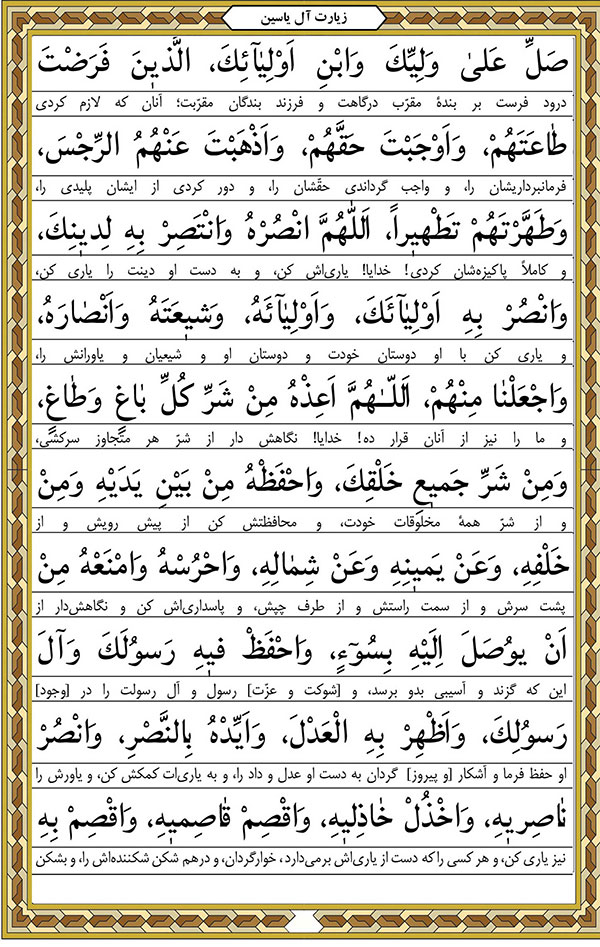 زیارت آل یاسین
صَلِّ عَلىٰ وَلِيِّكَ وَابْنِ اَوْلِيٰآئِكَ، الَّذينَ فَرَضْتَ
درود فرست بر بندهٔ مقرّب درگاهت و فرزند بندگان مقرّبت؛ آنان که لازم کردی
طٰاعَتَهُمْ، وَاَوْجَبْتَ حَقَّهُمْ، وَاَذْهَبْتَ عَنْهُمُ الرِّجْسَ،
فرمانبرداریشان را، و واجب گرداندی حقّشان را، و دور کردی از ایشان پلیدی را،
وَطَهَّرْتَهُمْ تَطْهيراً، اَللّٰهُمَّ انْصُرْهُ وَانْتَصِرْ بِهِ لِدينِكَ،
و کاملاً پاکیزه‌شان کردی! خدایا! یاری‌اش کن، و به دست او دینت را یاری کن،
وَانْصُرْ بِهِ اَوْلِيٰآئَكَ، وَاَوْلِيٰآئَهُ، وَشيعَتَهُ وَاَنْصٰارَهُ،
و یاری کن با او دوستان خودت و دوستان او و شیعیان و یاورانش را،
وَاجْعَلْنٰا مِنْهُمْ، اَللّـٰهُمَّ اَعِذْهُ مِنْ شَرِّ كُلِّ بٰاغٍ وَطٰاغٍ،
و ما را نیز از آنان قرار ده! خدایا! نگاهش دار از شرّ هر متّجاوز سرکشی،
وَمِنْ شَرِّ جَميعِ خَلْقِكَ، وَاحْفَظْهُ مِنْ بَيْنِ يَدَيْهِ وَمِنْ
و از شرّ همهٔ مخلوقات خودت، و محافظتش کن از پیش رویش و از
خَلْفِهِ، وَعَنْ يَمينِهِ وَعَنْ شِمٰالِهِ، وَاحْرُسْهُ وَامْنَعْهُ مِنْ
پشت سرش و از سمت راستش و از طرف چپش، و پاسداری‌اش کن و نگاهش‌دار از
اَنْ يوُصَلَ اِلَيْهِ بِسُوٓءٍ، وَاحْفَظْ فيهِ رَسوُلَكَ وَآلَ
این که گزند و آسیبی بدو برسد، و [شوکت و عزّت] رسول و آل رسولت را در [وجود]
رَسوُلِكَ، وَاَظْهِرْ بِهِ الْعَدْلَ، وَاَيِّدْهُ بِالنَّصْرِ، وَانْصُرْ
او حفظ فرما و آشکار [و پیروز] گردان به دست او عدل و داد را، و به یاری‌ات کمکش کن، و یاورش را
نٰاصِريهِ، وَاخْذُلْ خٰاذِليهِ، وَاقْصِمْ قٰاصِميهِ، وَاقْصِمْ بِهِ
نیز یاری کن، و هر کسی را که دست از یاری‌اش برمی‌دارد، خوارگردان، و درهم شکن شکننده‌اش را، و بشکن